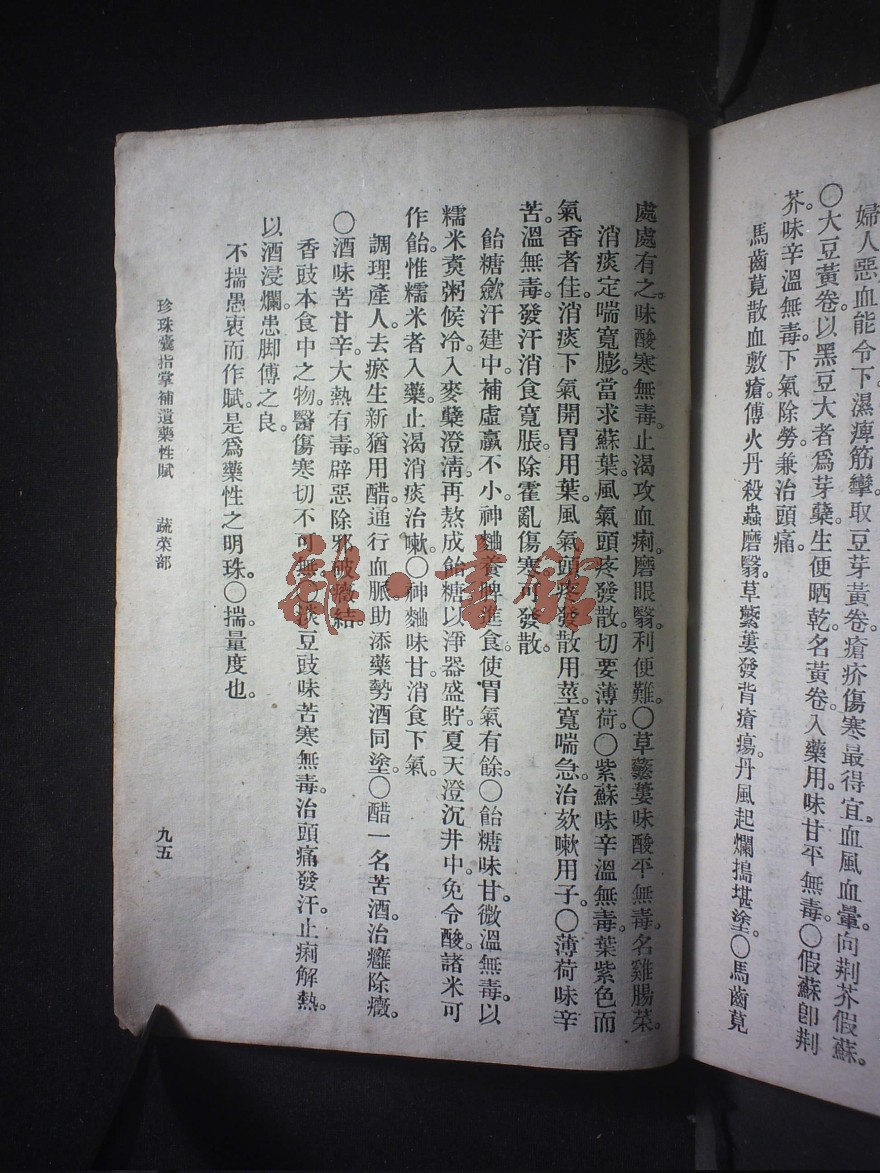 婦人惡血能令下。濕痺筋攣。取豆芽黃卷。瘡疥傷寒最得宜。血風血暈。向荆芥假蘇。
〇大豆黃卷。以黑豆大者爲芽蘖。生便晒乾。名黃卷。入藥用。味甘平無毒。〇假蘇卽荆
芥。味辛溫無毒。下氣除勞。兼治頭痛。
馬齒莧散血敷瘡。傅火丹殺蟲磨翳。草蘩蔞發背瘡瘍。丹風起爛搗堪塗。〇馬齒莧
處處有之。味酸寒無毒。止渴攻血痢。磨眼翳。利便難。〇草蘩蔞味酸平無毒。名雞腸菜。
消痰定喘寬膨。當求蘇葉。風氣頭疼發散。切要薄荷。〇紫蘇味辛溫無毒。葉紫色而
氣香者佳。消痰下氣開胃用葉。風氣頭疼發散用莖。寬喘急治欬嗽用子。〇薄荷味辛
苦。溫無毒。發汗消食寬脹。除霍亂傷寒可發散。
飴糖歛汗建中。補虛羸不小。神麯養脾進食。使胃氣有餘。〇飴糖味甘微溫無毒。以
糯米煑粥候冷。入麥蘖澄淸。再熬成飴糖。以淨器盛貯。夏天澄沉井中。免令酸。諸米可
作飴。惟糯米者入藥。止渴消痰治嗽。〇神麯味甘。消食下氣。
調理產人。去瘀生新猶用醋。通行血脈。助添藥勢酒同塗。〇醋一名苦酒。治癰除癥。
〇酒味苦甘辛。大熱有毒。辟惡除邪破癥結。
香豉本食中之物。醫傷寒切不可無。〇淡豆豉味苦寒無毒。治頭痛發汗。止痢解熱。
以酒浸爛。患脚傅之良。
不揣愚衷而作賦。是爲藥性之明珠。〇揣量度也。
珍珠囊指掌補遺藥性賦　蔬菜部　九五